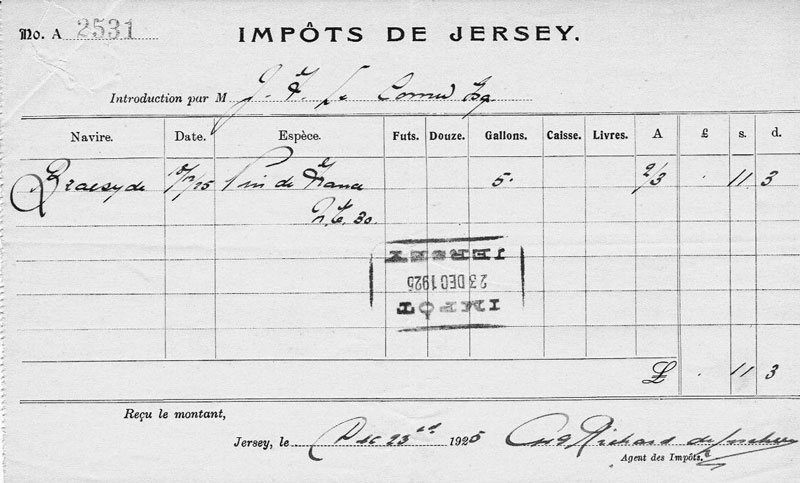 No. A 2531
IMPÔTS DE JERSEY.
Introduction par M J. F. Le Cornu Esq
Navire. Date. Espèce. Futs. Douze. Gallons. Caisse. Livres. A £ s. d.
Braesyde /25 Vin de France 5. 2/3 . 11 3
30
JERSEY
23 DEC 1925
IMPÔT
£ . 11 3
Reçu le montant,
Jersey, le Dec 23rd 1925 Richard
Agent des Impôts.